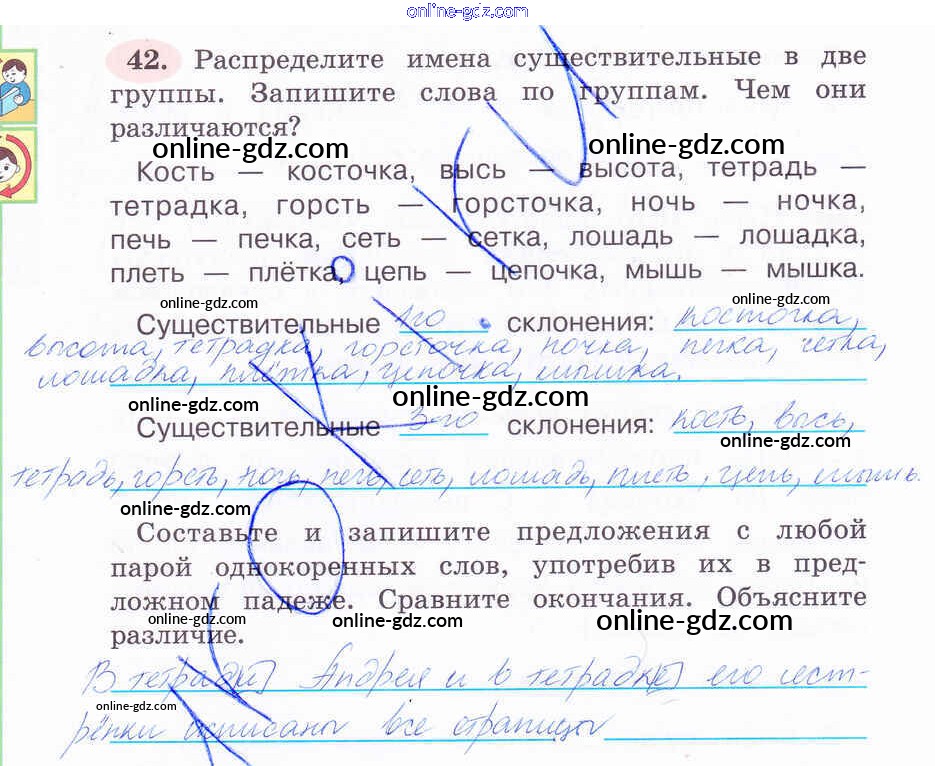 online-gdz.com
42. Распределите имена существительные в две
группы. Запишите слова по группам. Чем они
различаются?
online-gdz.com online-gdz.com
Кость — косточка, высь — высота, тетрадь —
тетрадка, горсть — горсточка, ночь — ночка,
печь — печка, сеть — сетка, лошадь — лошадка,
плеть — плётка, цепь — цепочка, мышь — мышка.
online-gdz.com online-gdz.com
Существительные 1-го склонения: косточка,
высота, тетрадка, горсточка, ночка, печка, сетка,
лошадка, плётка, цепочка, мышка.
online-gdz.com online-gdz.com
Существительные 3-го склонения: кость, высь,
online-gdz.com
тетрадь, горсть, ночь, печь, сеть, лошадь, плеть, цепь, мышь.
online-gdz.com
Составьте и запишите предложения с любой
парой однокоренных слов, употребив их в пред-
ложном падеже. Сравните окончания. Объясните
online-gdz.com online-gdz.com online-gdz.com
различие.
В тетради Андрея и в тетрадке его сест-
online-gdz.com
рёнки исписаны все страницы